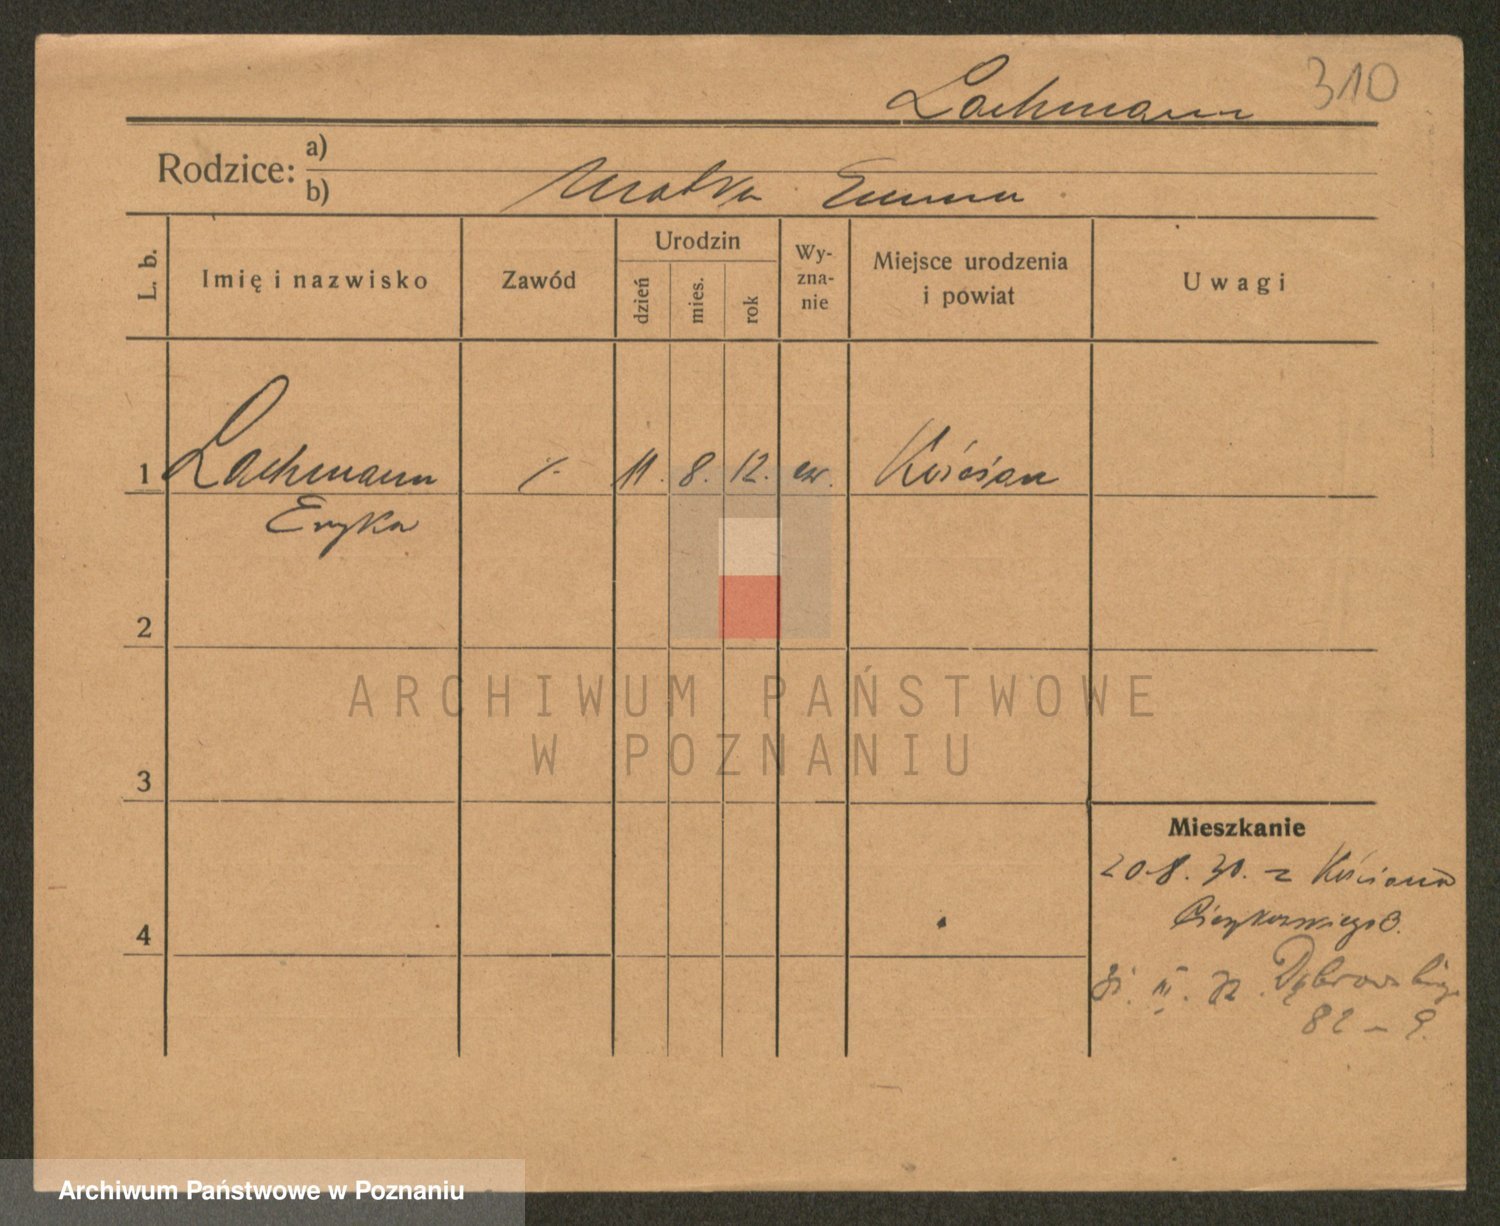 310
Lachmann
Rodzice: a)
b) Matka Emma
L. b. Imię i nazwisko Zawód Urodzin dzień mies. rok Wy-zna-nie Miejsce urodzenia i powiat Uwagi
1 Lachmann ./. 11. 8. 12. ew. Kościan
Eryka
2
ARCHIWUM PAŃSTWOWE
W POZNANIU
3
Mieszkanie
20.8.30. z Kościana
4
Dąbrowskiego
82 – 9.
Archiwum Państwowe w Poznaniu